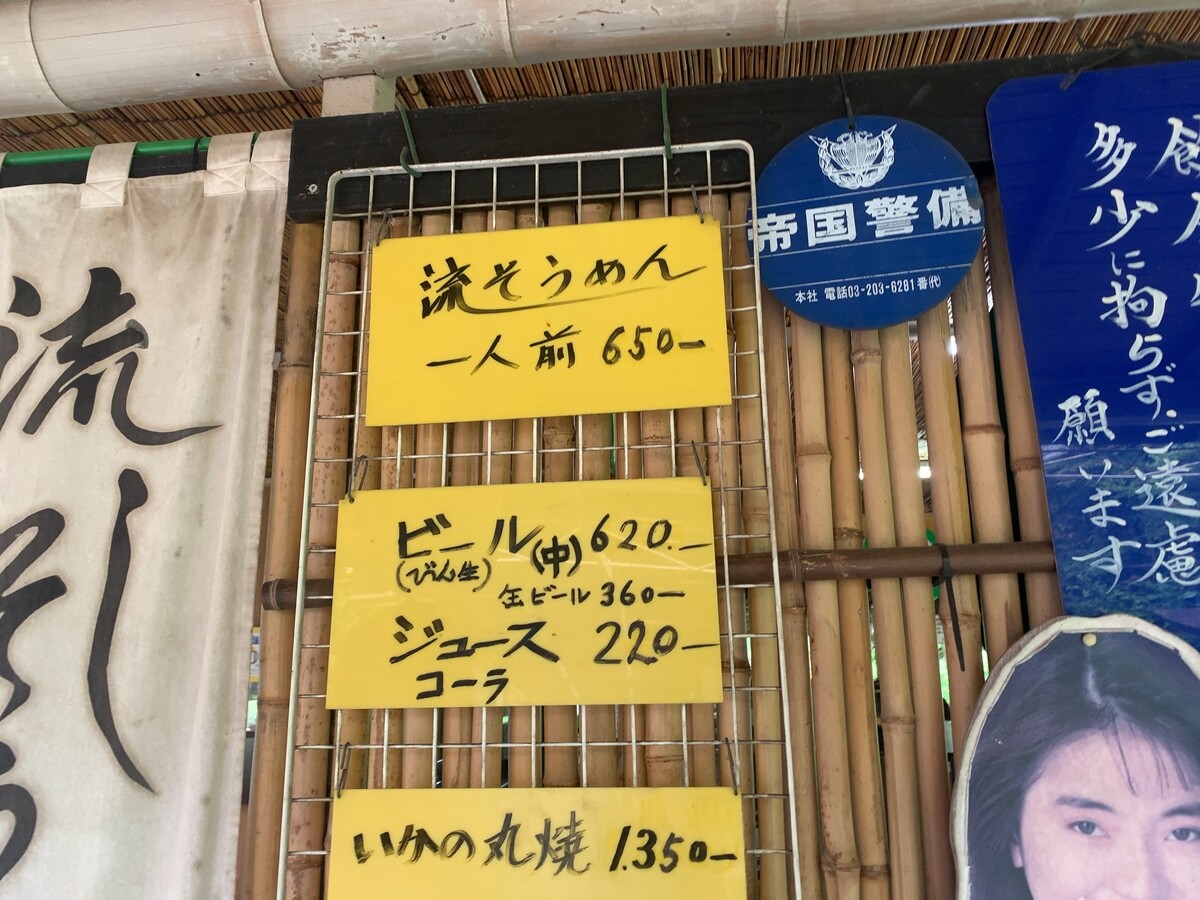 流し
そう
流そうめん
一人前 650-
ビール(中) 620.-
(びん生)
缶ビール 360-
ジュース 220-
コーラ
いかの丸焼 1.350-
帝国警備
本社 電話03-203-6281番(代)
多少に拘らず、ご遠慮
願います